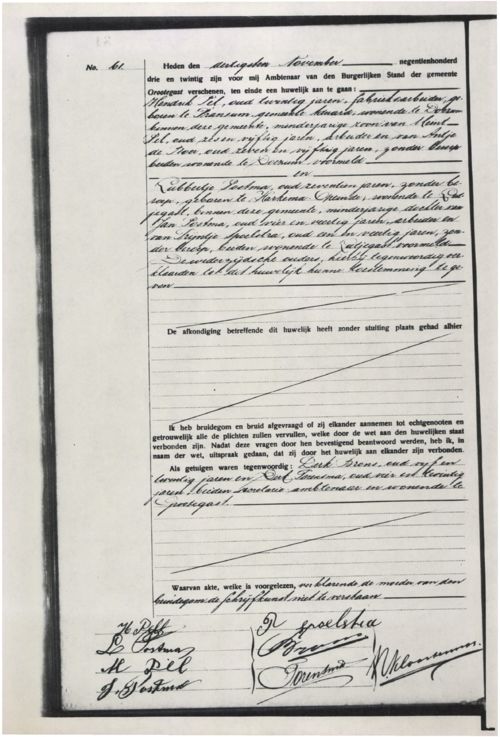 No. 61. Heden den dertigsten November negentienhonderd
drie en twintig zijn voor mij Ambtenaar van den Burgerlijken Stand der gemeente
Grootegast verschenen, ten einde een huwelijk aan te gaan:
Hendrik Pel, oud twintig jaren, fabriekarbeider, ge-
boren te Fransum gemeente, wonende te
binnen deze gemeente, minderjarige zoon van
Pel, oud zes en vijftig jaren, arbeider en van Antje
de Boer, oud zeven en vijftig jaren, zonder beroep
beiden wonende te Doezum voormeld
en
Lubbertje Postma, oud zeventien jaren, zonder be-
roep, geboren te Harkema Opeinde, wonende te Lut-
jegast, binnen deze gemeente, minderjarige dochter van
Jan Postma, oud vier en veertig jaren, arbeider en
van Trijntje Spoelstra, oud een en veertig jaren, zon-
der beroep, beiden wonende te Lutjegast voormeld
De wederzijdsche ouders, hierbij tegenwoordig ver-
klaarden tot dit huwelijk hunne toestemming te ge-
ven
De afkondiging betreffende dit huwelijk heeft zonder stuiting plaats gehad alhier
Ik heb bruidegom en bruid afgevraagd of zij elkander aannemen tot echtgenooten en
getrouwelijk alle de plichten zullen vervullen, welke door de wet aan den huwelijken staat
verbonden zijn. Nadat deze vragen door hen bevestigend beantwoord werden, heb ik, in
naam der wet, uitspraak gedaan, dat zij door het huwelijk aan elkander zijn verbonden.
Als getuigen waren tegenwoordig: Derk Brons, oud vijf en
twintig jaren en Torensma, oud vier en twintig
jaren, beiden secretarie ambtenaar en wonende te
Grootegast.
Waarvan akte, welke is voorgelezen, verklarende de moeder van den
bruidegom de schrijfkunst niet te verstaan
H Pel
L Postma
M Pel
J. Postma
T. Spoelstra
Brons
Torensma